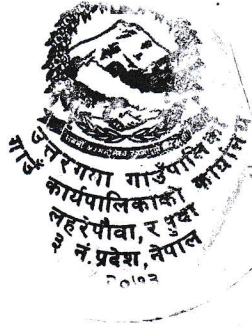 उत्तरगया गाउँपालिका
गाउँ कार्यपालिकाको कार्यालय
लहरेपौवा, रसुवा
३ नं.प्रदेश, नेपाल
२०७३